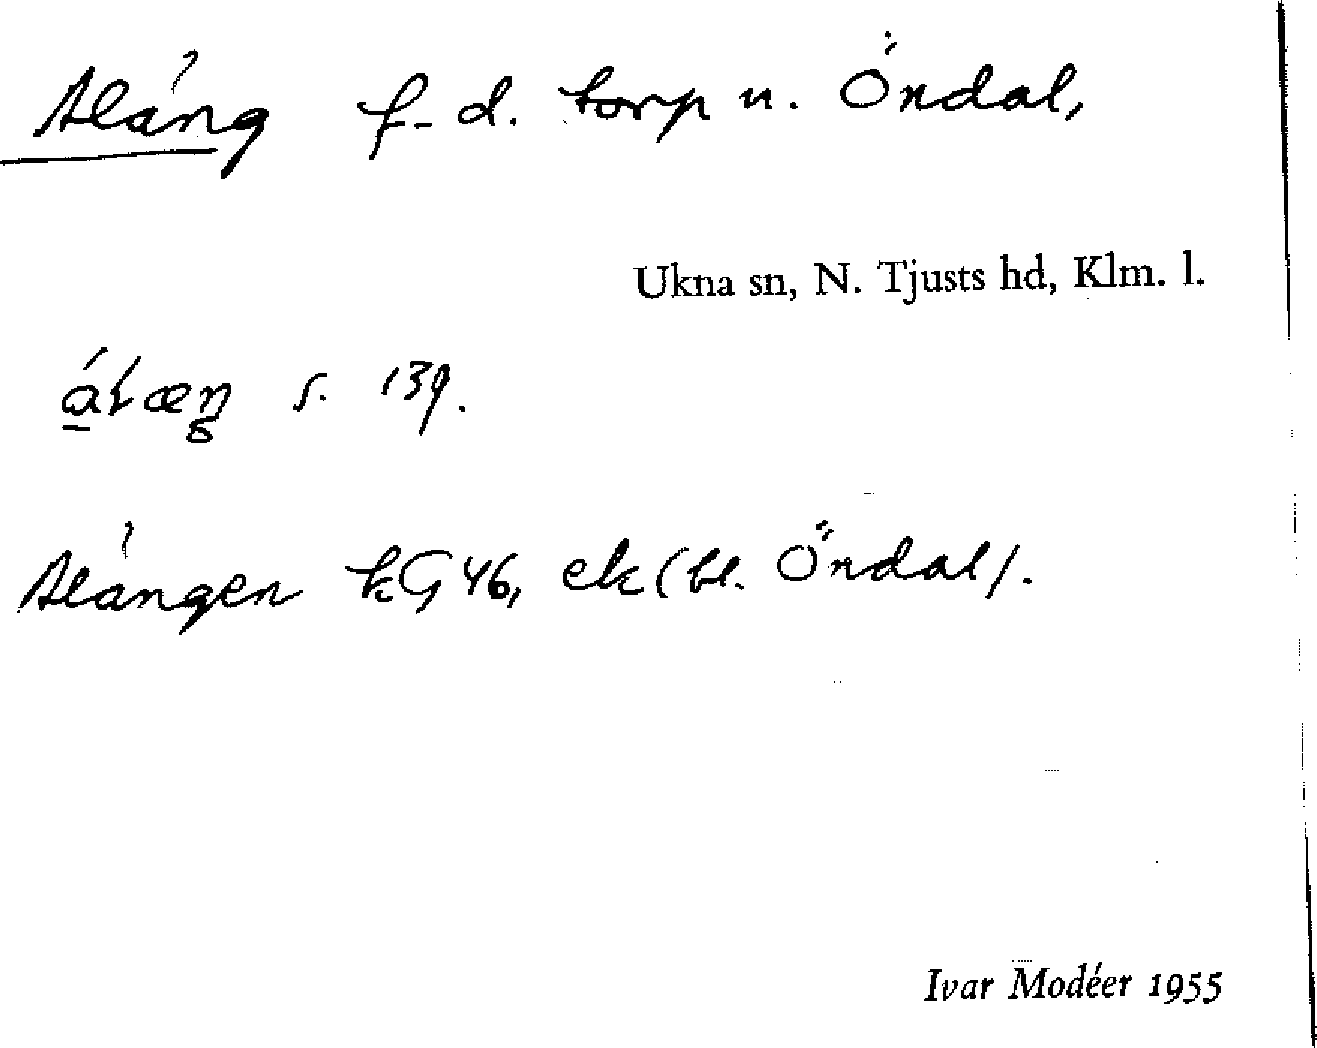 Aläng f. d. torp u. Öndal,
Ukna sn, N. Tjusts hd, Klm. l.
s. 139.
Alängen kG 46, ek (bl. Öndal).
Ivar Modéer 1955